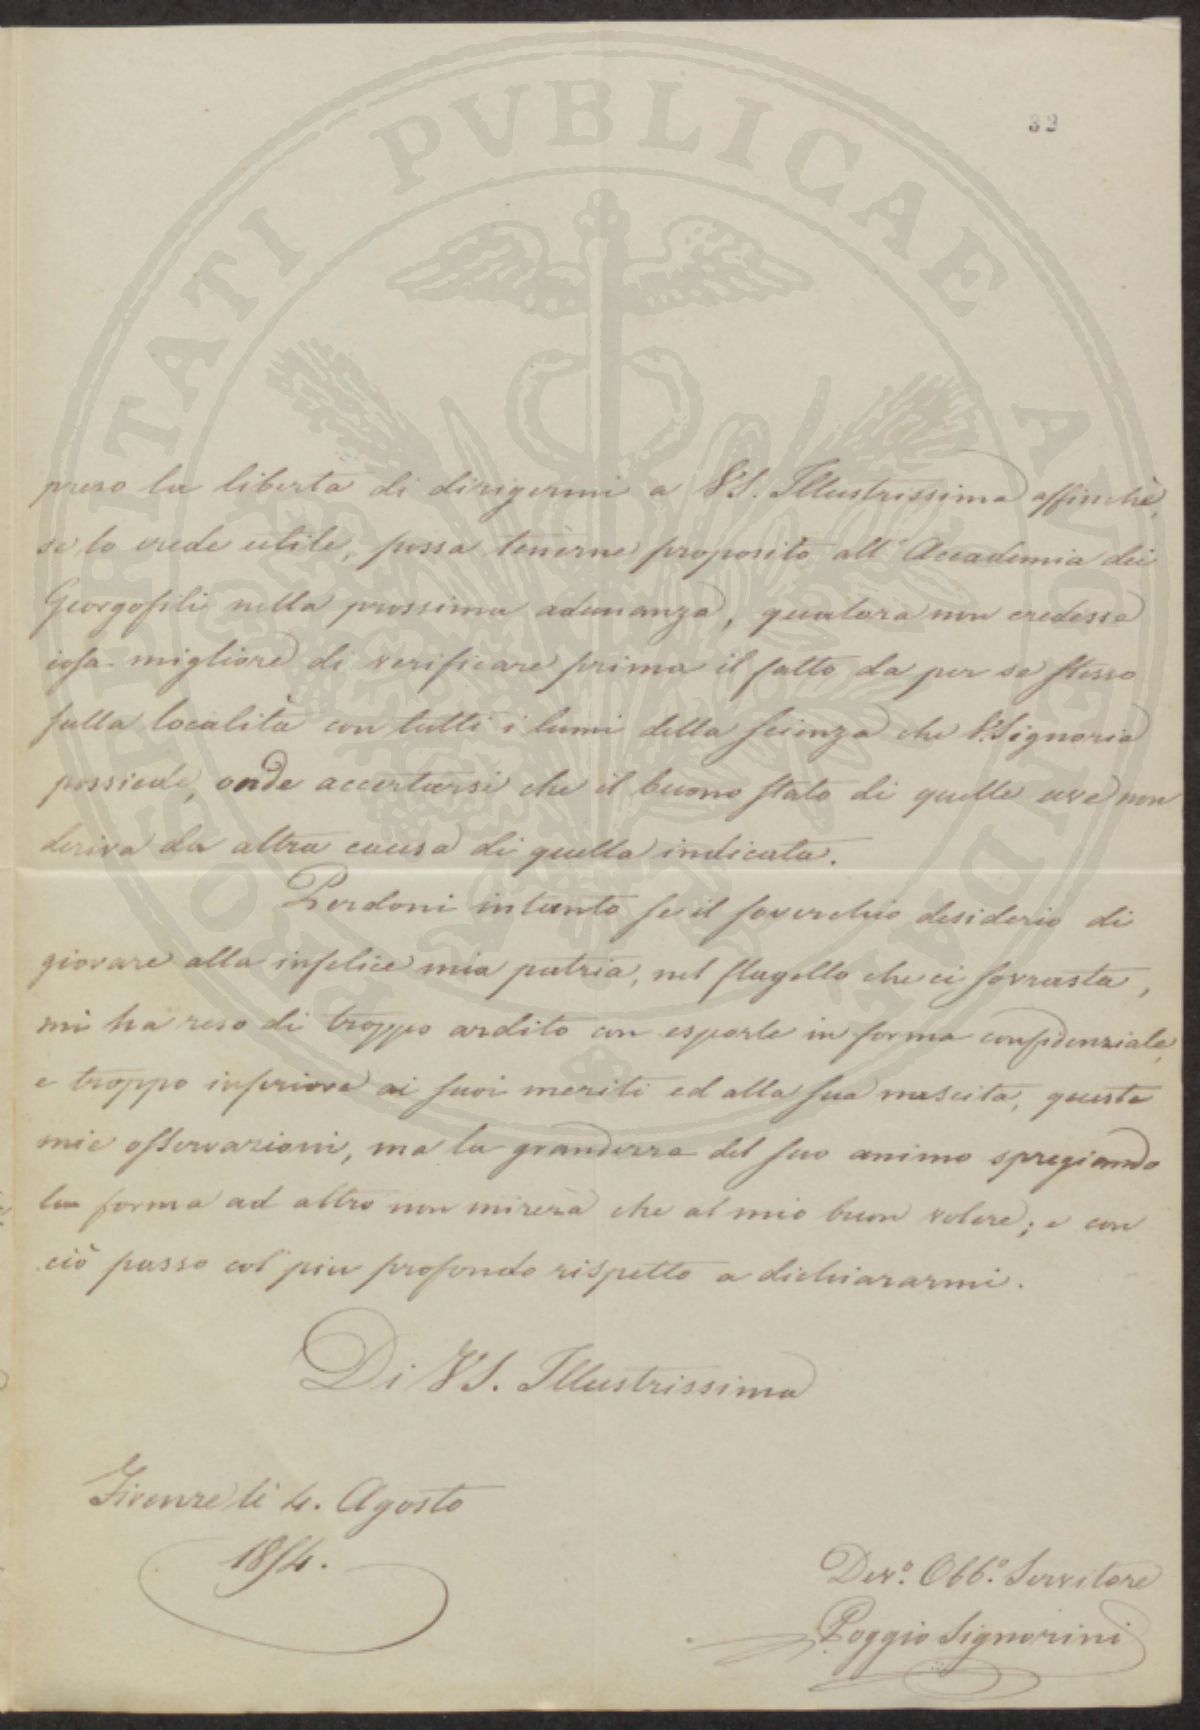 PROSPERITATI PVBLICAE AVGENDAE
32
preso la libertà di dirigermi a VS. Illustrissima affinchè,
se lo crede utile, possa tenerne proposito all'Accademia dei
Georgofili nella prossima adunanza, qualora non credesse
cosa migliore di verificare prima il fatto da per se stesso
sulla località con tutti i lumi della scienza che V.Signoria
possiede, onde accertarsi che il buono stato di quelle uve non
deriva da altra causa di quella indicata.
Perdoni intanto se il soverchio desiderio di
giovare alla infelice mia patria, nel flagello che ci sovrasta,
mi ha reso di troppo ardito con esporle in forma confidenziale,
e troppo inferiore ai suoi meriti ed alla sua nascita, queste
mie osservazioni, ma la grandezza del suo animo spregiando
la forma ad altro non mirerà che al mio buon volere; e con
ciò passo col più profondo rispetto a dichiararmi.
Di VS. Illustrissima
Firenze li 4. Agosto
1854.
Dev.º Obb.º Servitore
Poggio Signorini